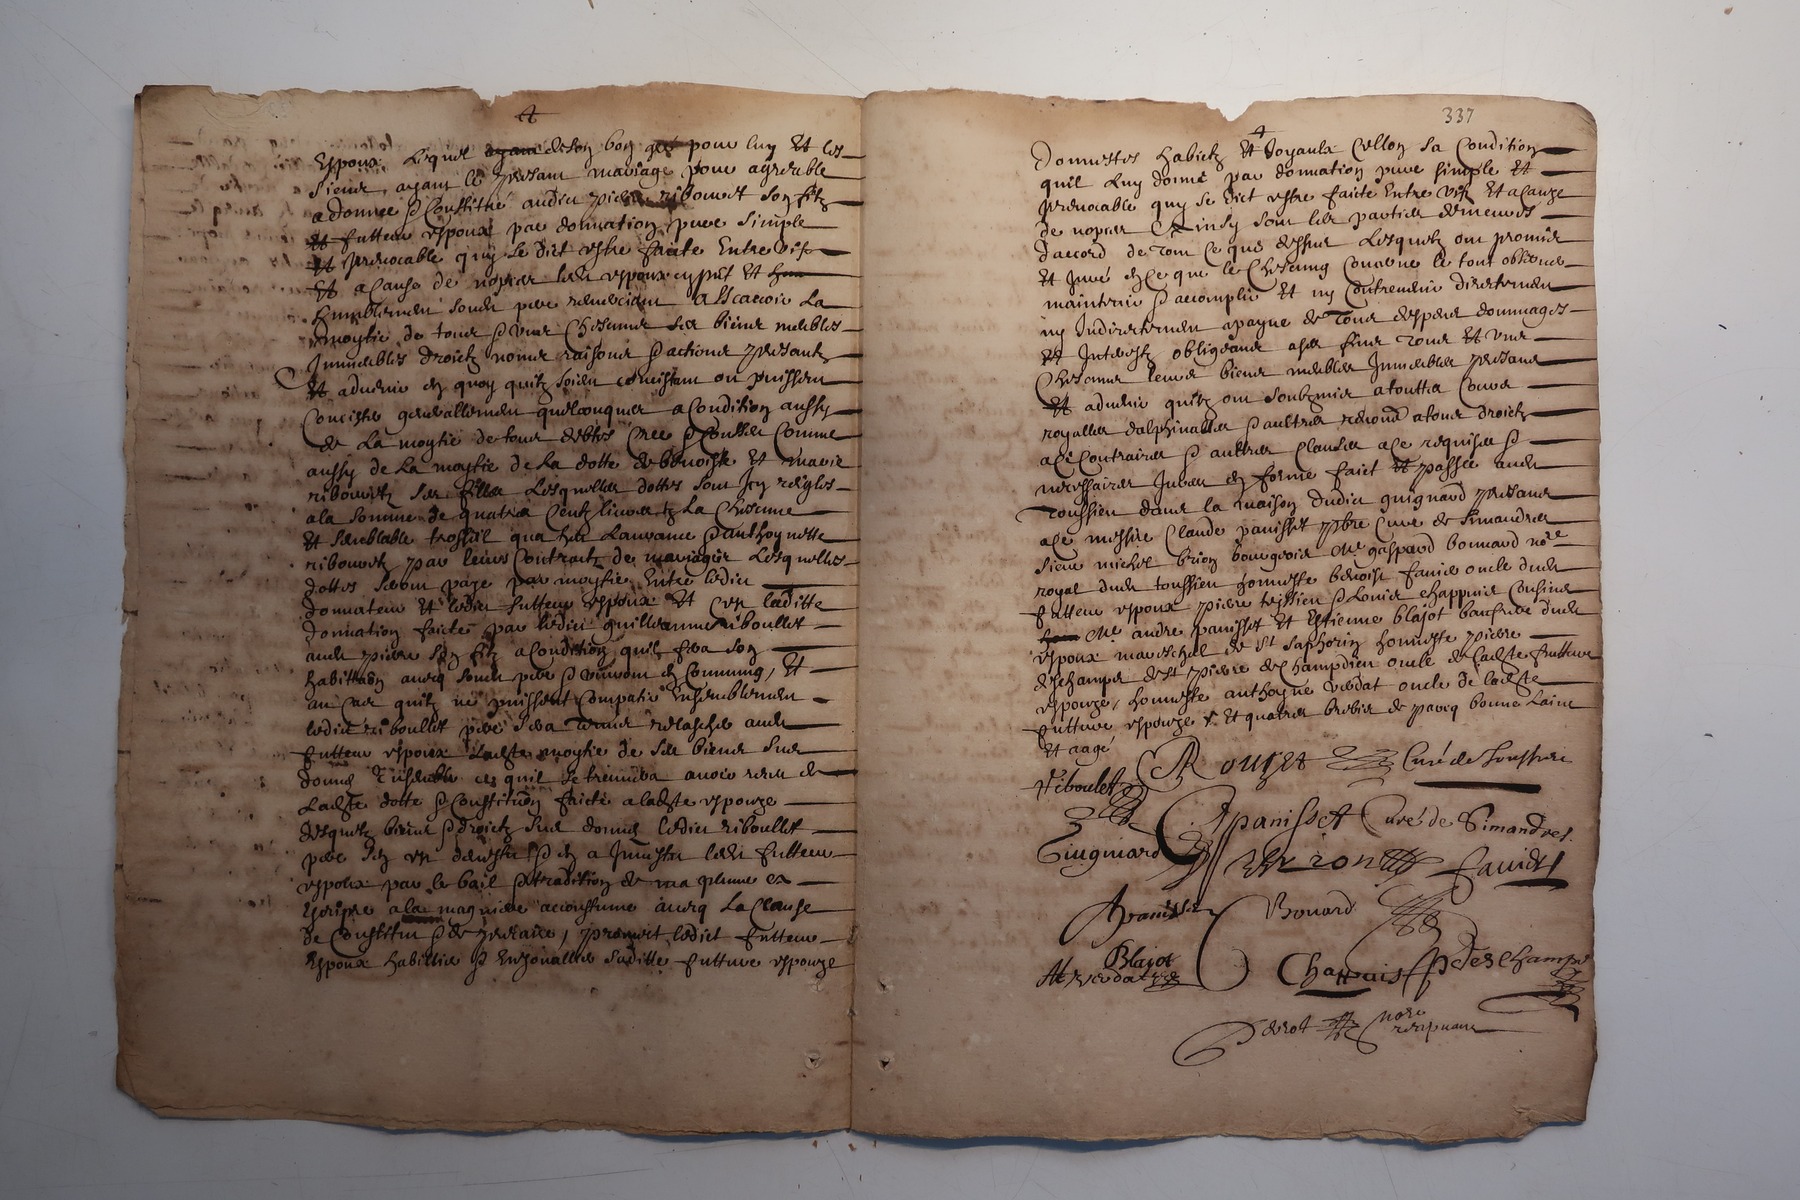 4
Espoux Lequel de son bon gré pour luy Et les
siens ayant le present mariage pour agreable
a donné & Constitué audict pierre ribouet son filz
Et futteur espoux par donnation pure simple
Et Irrevocable quy se dict estre faicte Entre vifz
Et a Cause de nopces ledit espoux cy pnt Et
humblement sondit pere remerciant Asscavoir La
moytié de tous & uns Chescuns ses biens meubles
Immeubles droictz noms raisons & actions presantz
Et advenir en quoy quilz soient concistant ou puissent
Concister generallement quelconques a Condition aussy
de La moytié de tous debtes Cree & Comme
aussy de La moytié de La dotte de benoiste Et marie
ribouetz ses filles Lesquelles dottes sont Icy reigles
a la somme de quatre Centz livres La Chescune
Et semblable trossel qua heu Laurance & anthoynette
ribouetz par leurs Contractz de mariages Lesquelles
dottes seront paye par moytié Entre ledict
donnateur Et ledict futteur espoux Et en laditte
donnation faicte par ledict guillaume riboullet
audit pierre son filz a Condition quil fera son
habittaon avecq sondit pere & vivront en Commung, Et
au Cas quilz ne puissent Compatir Ensemblement
ledict riboullet pere sera tenu relascher audit
futteur espoux ladite moytié de ses biens sus
donné Ensemble ce quil se treuvera avoir receu de
Ladite dotte & Constitution faicte a ladite espouze
desquelz biens & droictz sus donné ledict riboullet
pere sen est devestu & en a Investu ledit futteur
espoux par le bail & tradition de ma plume Et
Escripre a la maniere accoustumé avecq La Clause
de Constitut & de precaire, promet ledict futteur
Espoux habillier & Enjoualler saditte future espouze
337
4
d'honnestes habictz Et Joyaulx Cellon sa Condition
quil Luy donne par donnation pure simple Et
Irrevocable quy se dict estre faicte Entre vifz Et a Cauze
de nopces Et Ainsy sont les parties demeures
d'accord de tout Ce que dessus Lesquelz ont promis
Et Juré en Ce que le Chescung Concerne le tout observer
maintenir & accomplir Et ny Contrevenir directement
ny Indirectement a payne de tous despens dommages
Et Interestz obligeant a Ces fins tous Et uns
Chescuns leurs biens meubles Immeubles presans
Et advenir quilz ont soubzmis a touttes Cours
royalles dalphinalles & aultres renoncé a tous droictz
a Ce Contraires & aultres Clauses a Ce requises &
necessaires Jurée en forme faict Et passée audit
Toussieu dans la maison dudict guignard presans
a Ce messire Claude panisset pbre Curé de Simandres
sieur michel brion bourgeois Me gaspard bonnard nore
royal dudit toussieu honneste benoist favier oncle dudit
futteur espoux pierre & Louis Chappuis Cousins
Me andre panisset Et Estienne blajot beaufrere dudit
espoux mareschal de St saphorin honneste pierre
deschamps de St pierre de Champdieu oncle de ladite future
espouze, honneste anthoyne verdat oncle de ladite
future espouze & Et quatre brebis de parcq bonne Laine
Et aagé
Riboulet Rouzet Curé de Toussieu
Panisset Curé de Simandres
Guignard Brion favier
Panisset Bonard
Blajot
A Verdat Chappuis P deschamps
Perrot nore recepvant